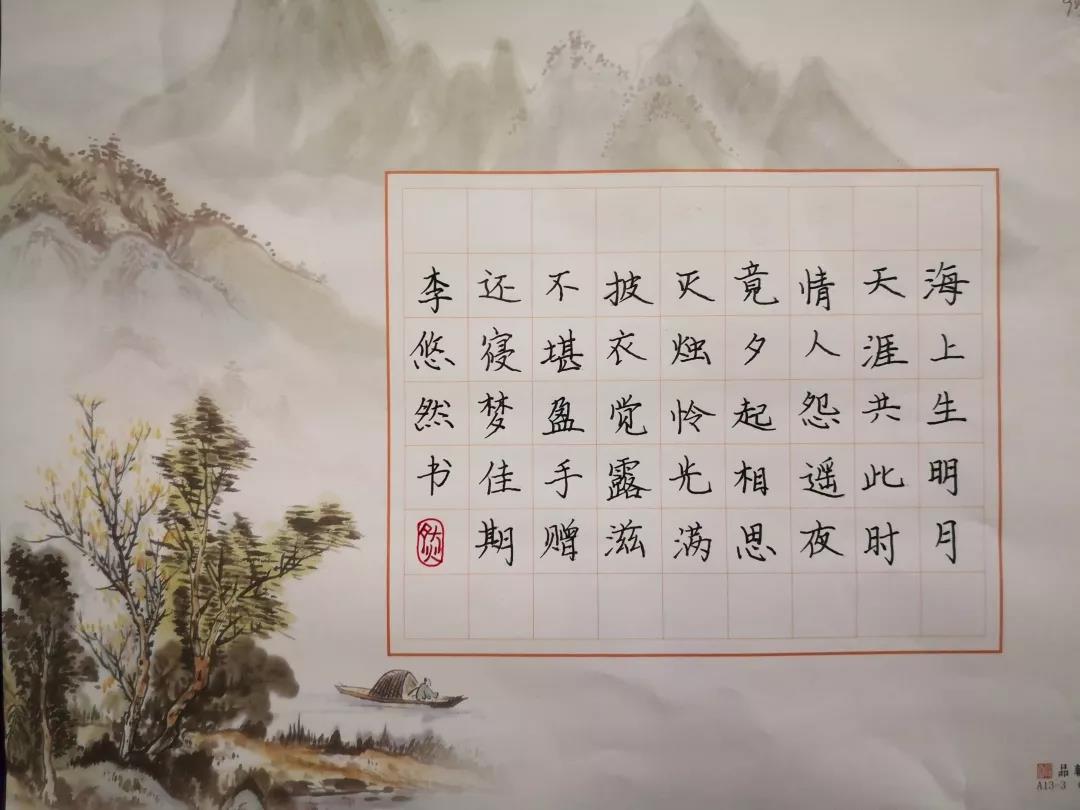 海上生明月
天涯共此时
情人怨遥夜
竟夕起相思
灭烛怜光满
披衣觉露滋
不堪盈手赠
还寝梦佳期
李悠然书
品
A13-3